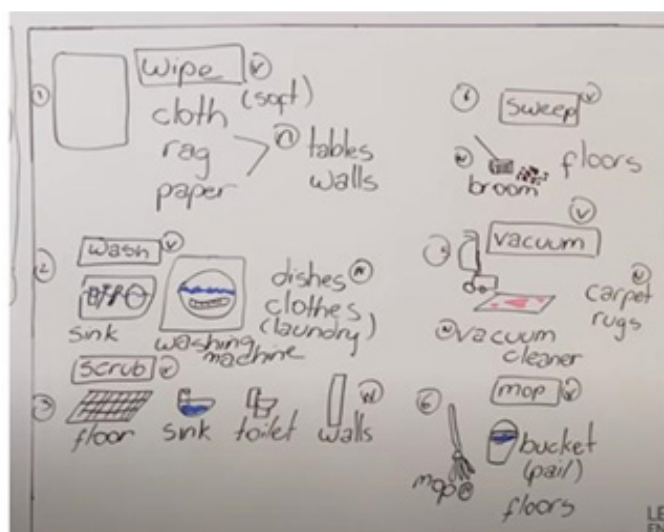 1 wipe v
(soft)
cloth
rag
paper
n tables
walls
2 wash v
sink
washing
machine
dishes n
clothes
(laundry)
scrub v
3 floor sink toilet walls n
sweep v
n
broom
floors
vacuum v
n vacuum
cleaner
n
carpet
rugs
6 mop v
mop n
bucket
(pail)
floors